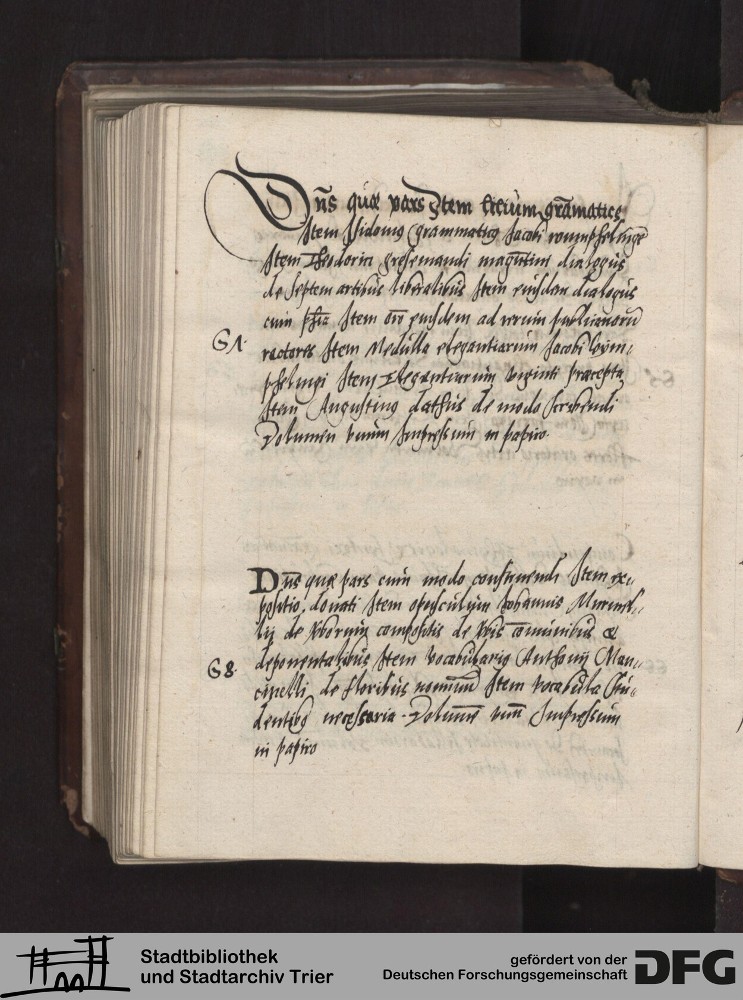 Dn̄s quae pars Item tticium gr̄amatices
Item Isidoneus grammaticus Jacobi wimphelinge
Item Theodorici gresemundi magutini dialogus
de septem artibus liberalibus Item eiusdem dialogus
cum Item eiusdem ad rerum publicarum
G 1. rectores Item Medulla elegantiarum Jacobi Wym,
phelingi Item Elegantiarum viginti praecepta
Item Augustinus dathus de modo scribendi
Volumen vnum Impressum in papiro.
Dn̄s quae pars cum modo construendi Item ex,
positio donati Item opusculum Johannis Murmel,
lij de verborum compositis de verbis com̄unibus &
G 8. deponentalibus Item vocabularius Anthonij Man,
cinelli de floribus Item vocabula stu,
dentibus necessaria. Volumē vnū Impressum
in papiro
Stadtbibliothek
und Stadtarchiv Trier
gefördert von der
Deutschen Forschungsgemeinschaft
DFG